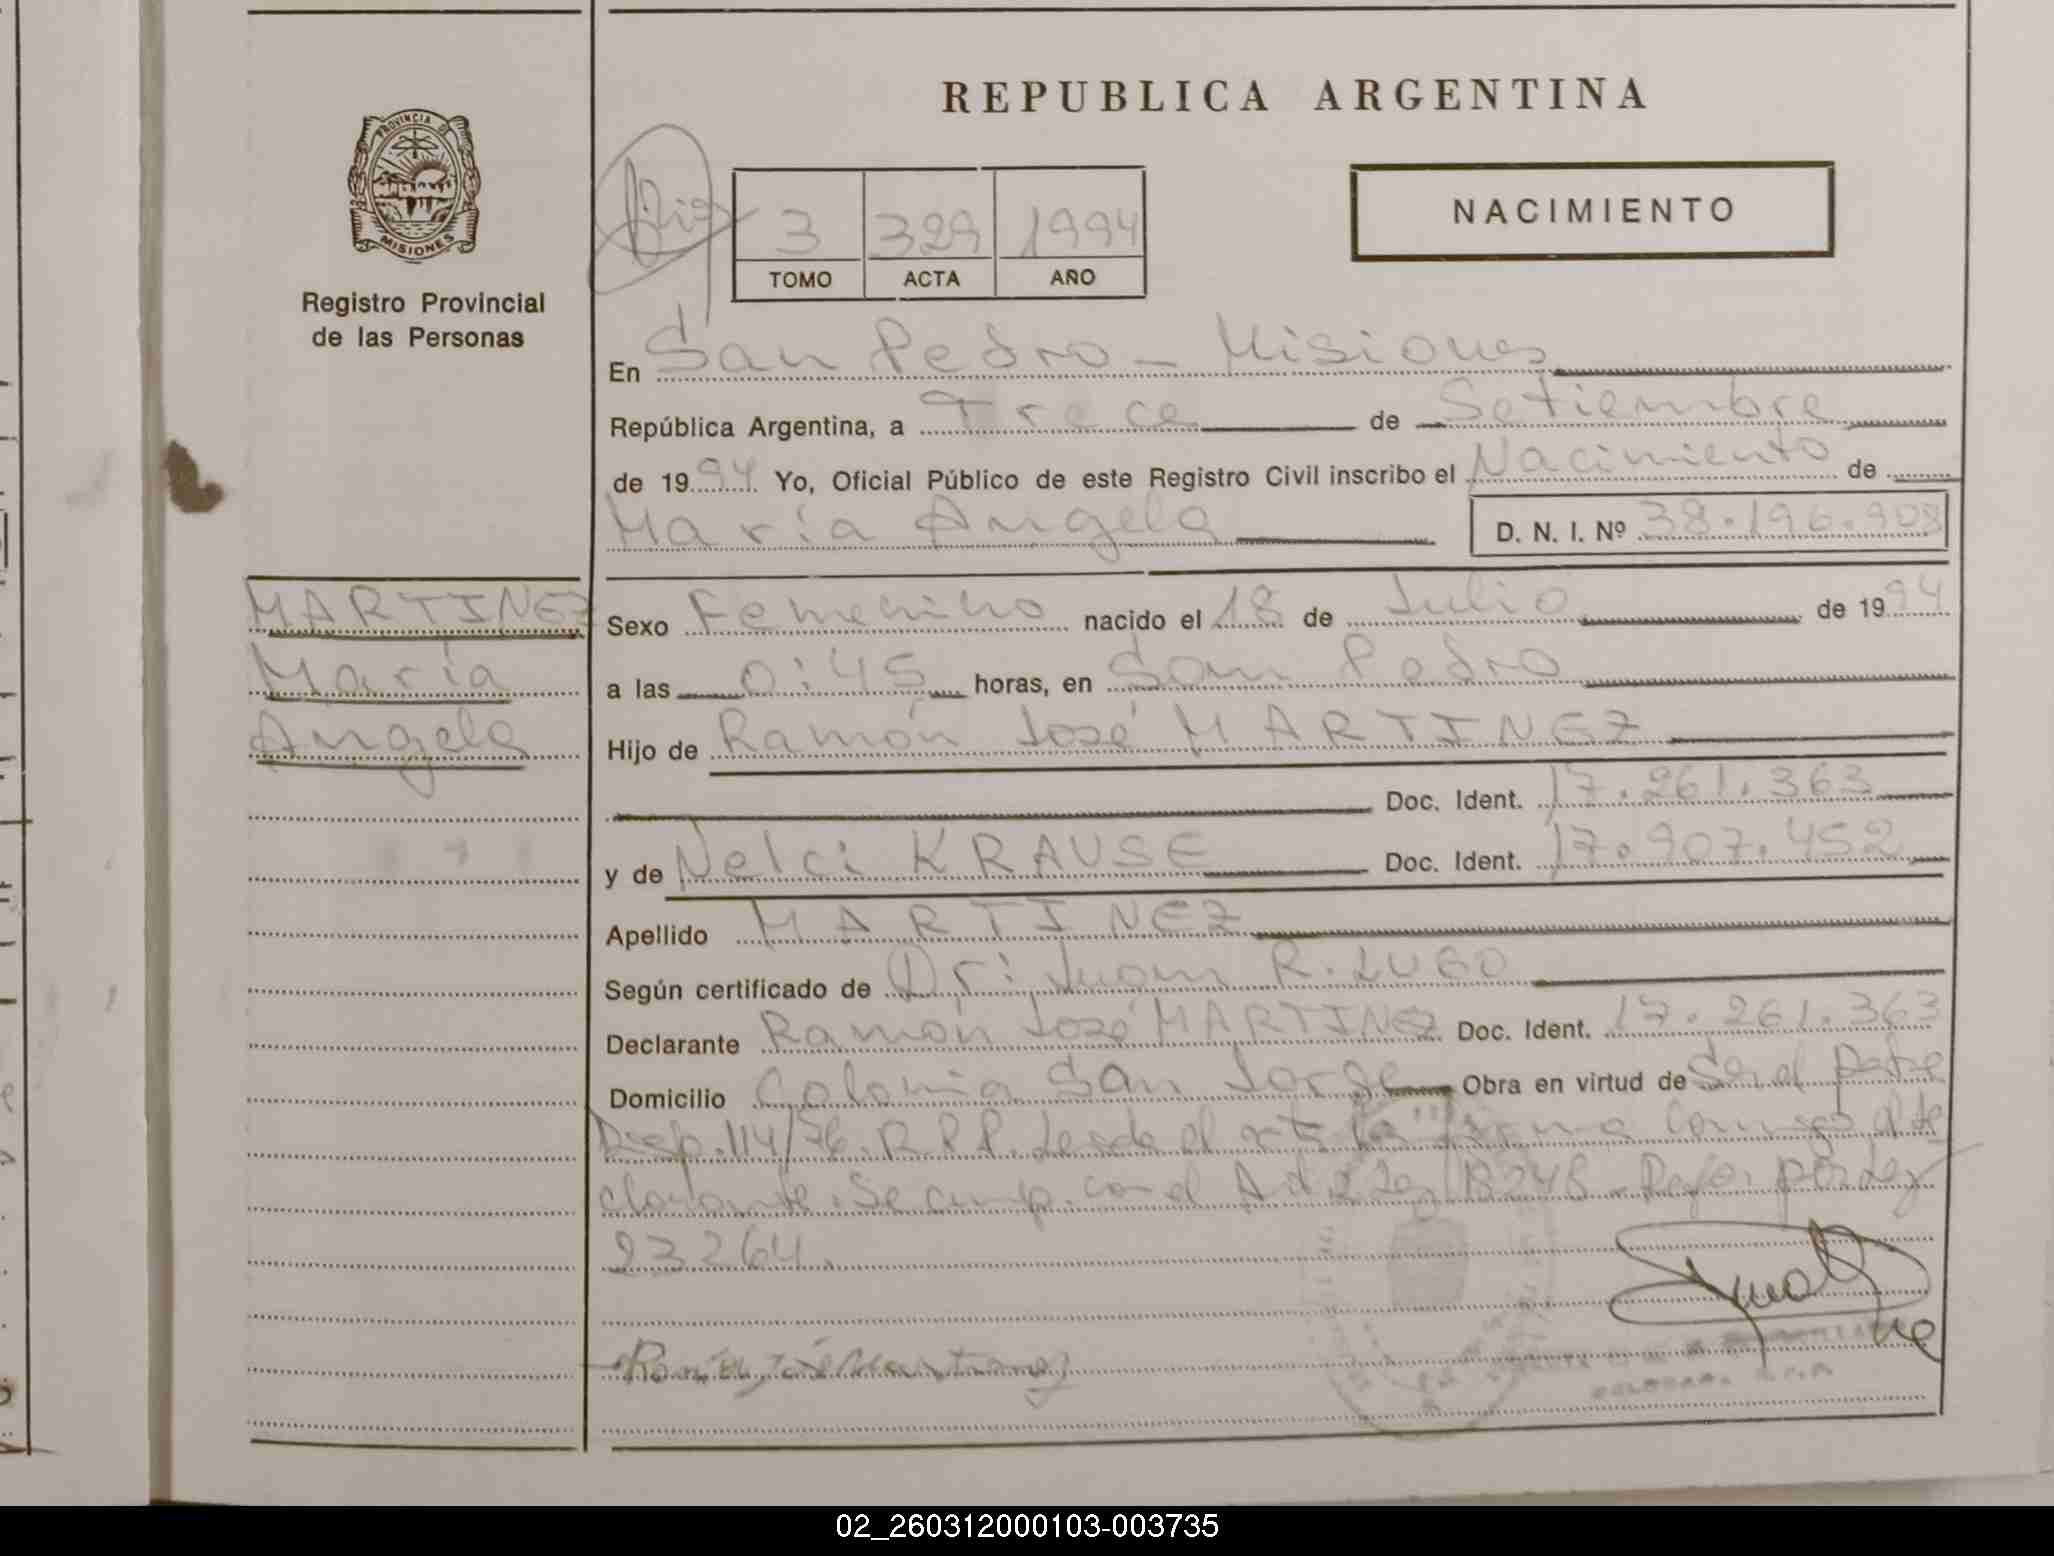 REPUBLICA ARGENTINA
PROVINCIA DE
MISIONES
Registro Provincial
de las Personas
3 329 1994
TOMO ACTA AÑO
NACIMIENTO
En San Pedro - Misiones
República Argentina, a Trece de Setiembre
de 1994 Yo, Oficial Público de este Registro Civil inscribo el Nacimiento de
María Angela D. N. I. Nº 38.196.908
MARTINEZ
María
Angela
Sexo Femenino nacido el 18 de Julio de 1994
a las 0:45 horas, en San Pedro
Hijo de Ramón José MARTINEZ
Doc. Ident. 17.261.363
y de Nelci KRAUSE Doc. Ident. 17.907.452
Apellido MARTINEZ
Según certificado de Dr: Juan R. LUGO
Declarante Ramón José MARTINEZ Doc. Ident. 17.261.363
Domicilio Colonia San Jorge Obra en virtud de Ser el padre
Disp. 114/76. R.P.P. Leida el acta la firma conmigo el de
clarante. Se cump. con el Art 2 Ley 18248. Por Ley
23264.
Ramón José Martinez
02_260312000103-003735